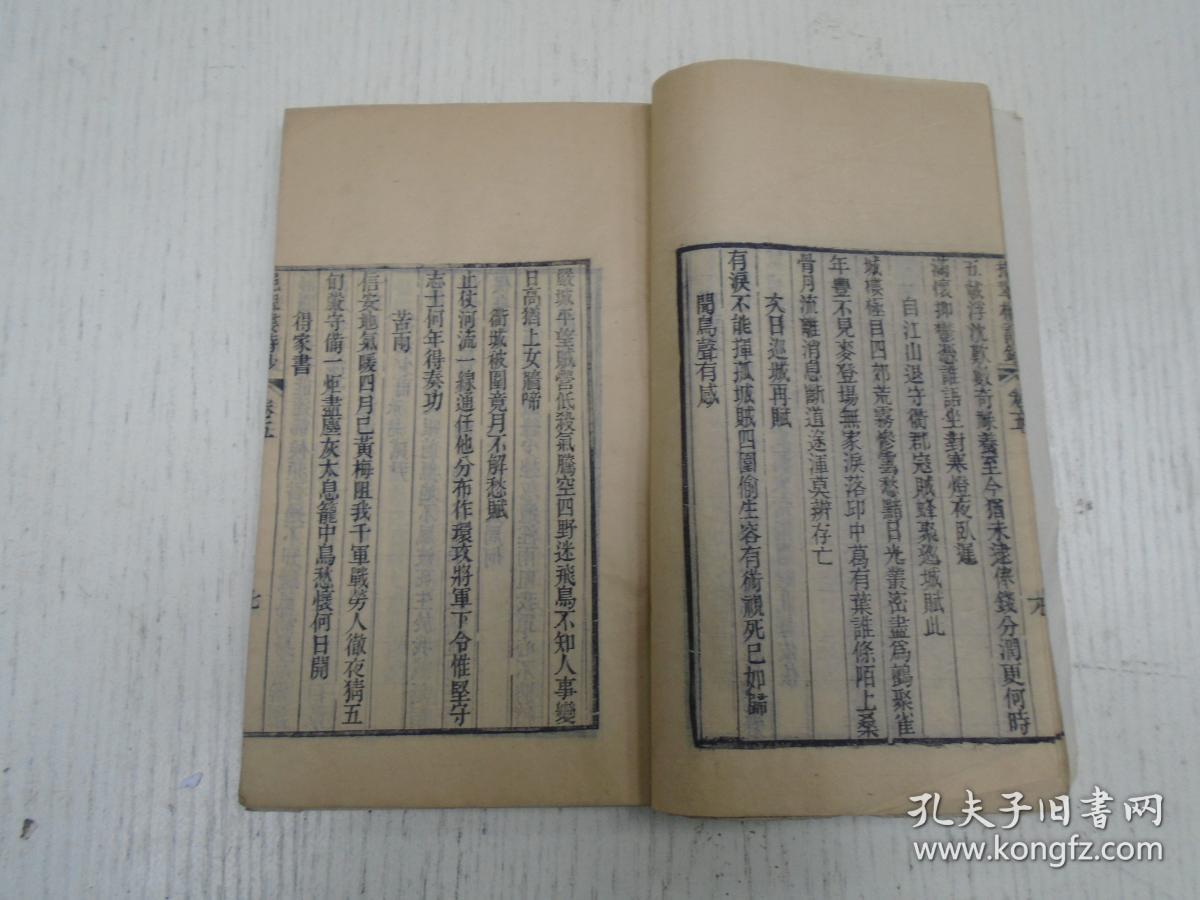 五就浮沈歎數奇豚養至今猶未逮俸錢分潤更何時
滿懷抑鬱憑誰語坐對寒燈夜臥遲
自江山退守衢郡寇賊蜂聚迤城賦此
城樓極目四郊荒霧慘雲愁黯日光叢密盡爲鶴聚雀
年豐不見麥登場無家淚落印中葛有葉誰條陌上桑
骨月流離消息斷道途渾莫辨存亡
次日巡城再賦
有淚不能揮孤城賊四圍偷生容有術視死已如歸
聞鳥聲有感
嚴城平望賊營低殺氣騰空四野迷飛鳥不知人事變
日高猶上女牆啼
衢城被圍竟月不解愁賦
止仗河流一線通任他分布作環攻將軍下令惟堅守
志士何年得奏功
苦雨
信安地氣暖四月已黃梅阻我千軍戰勞人徹夜猜五
旬嚴守備一炬盡塵灰太息籠中鳥愁懷何日開
得家書
卷五
七
孔夫子旧书网
www.kongfz.com